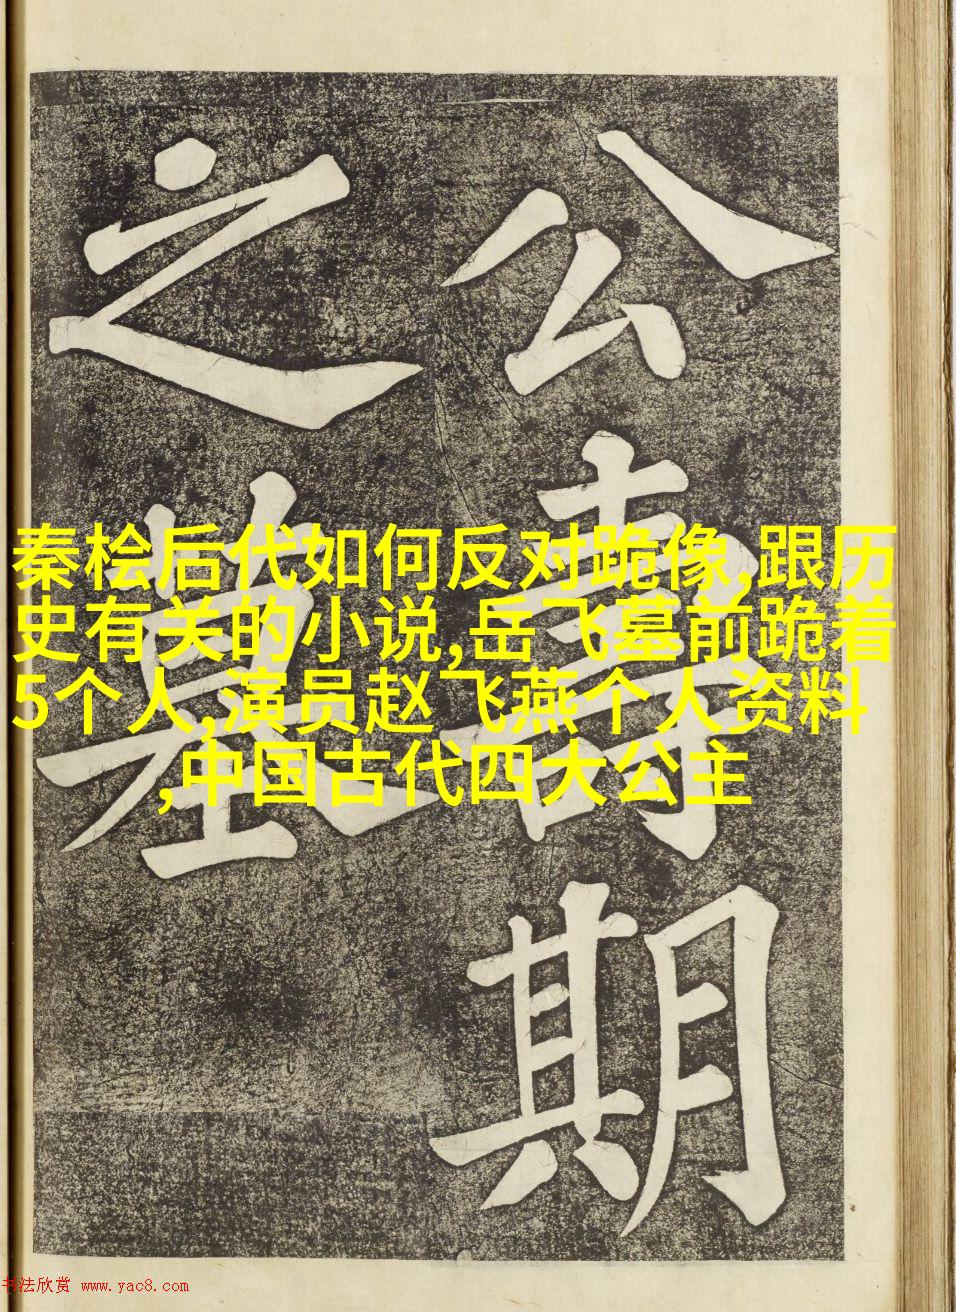 公壽期
之墓
秦桧后代如何反对跪像,跟历
史有关的小说,岳飞墓前跪着
5个人,演员赵飞燕个人资料
,中国古代四大公主
书法欣赏 www.yac8.com